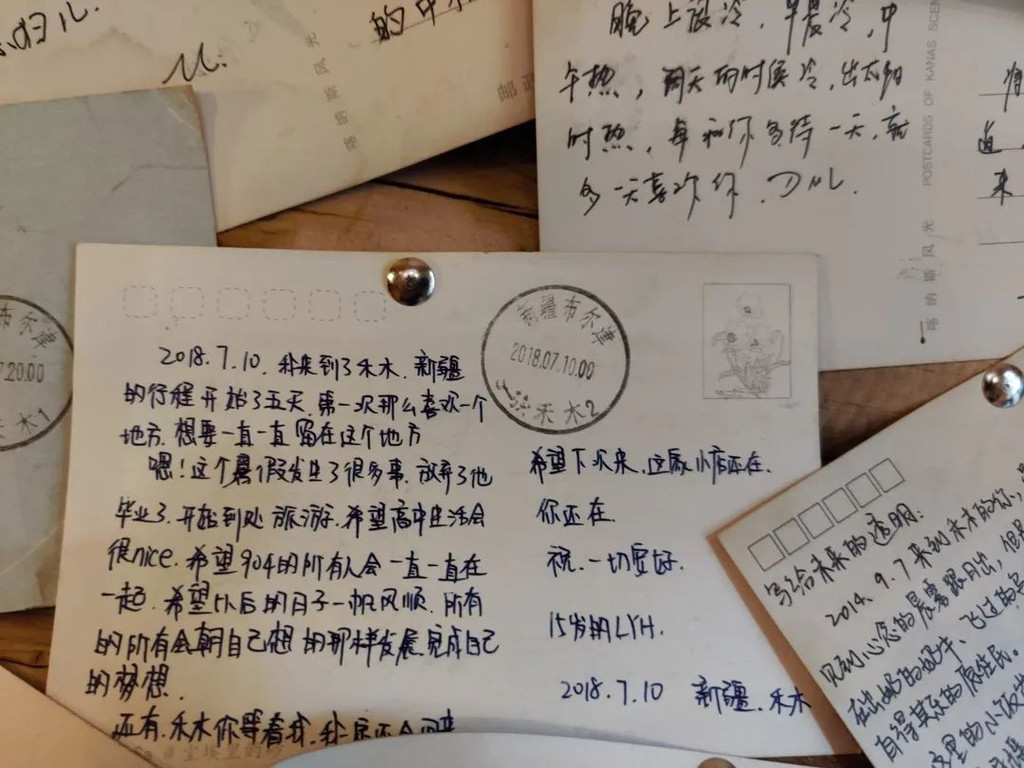 的中
喀纳斯风光
晚上很冷，早晨冷，中
午热，雨天的时候冷，出太阳
时热，每和你多待一天，就
多一天喜欢你，
POSTCARDS OF KANAS SCEN
喀纳斯风光
道
来
布尔津
7.20.00
禾木1
新疆布尔津
2018.07.10.00
禾木2
2018.7.10. 我来到了禾木. 新疆
的行程开始了五天. 第一次那么喜欢一个
地方. 想要一直一直留在这个地方
嗯！这个暑假发生了很多事. 放弃了他
毕业了. 开始到处旅游. 希望高中生活会
很nice. 希望904的所有人会一直一直在
一起. 希望以后的日子一帆风顺. 所有
的所有会朝自己想的那样发展完成自己
的梦想.
还有. 禾木你等着我. 我
希望下次来. 这家小店还在.
你还在.
祝. 一切安好.
15岁的LYH.
2018.7.10 新疆. 禾木
写给未来的透明：
2014.9.7 来到禾木的你，
见到心怡的晨雾跟月出，但
在出奶的奶牛、飞过的
自得其乐的原住民。
这里的小